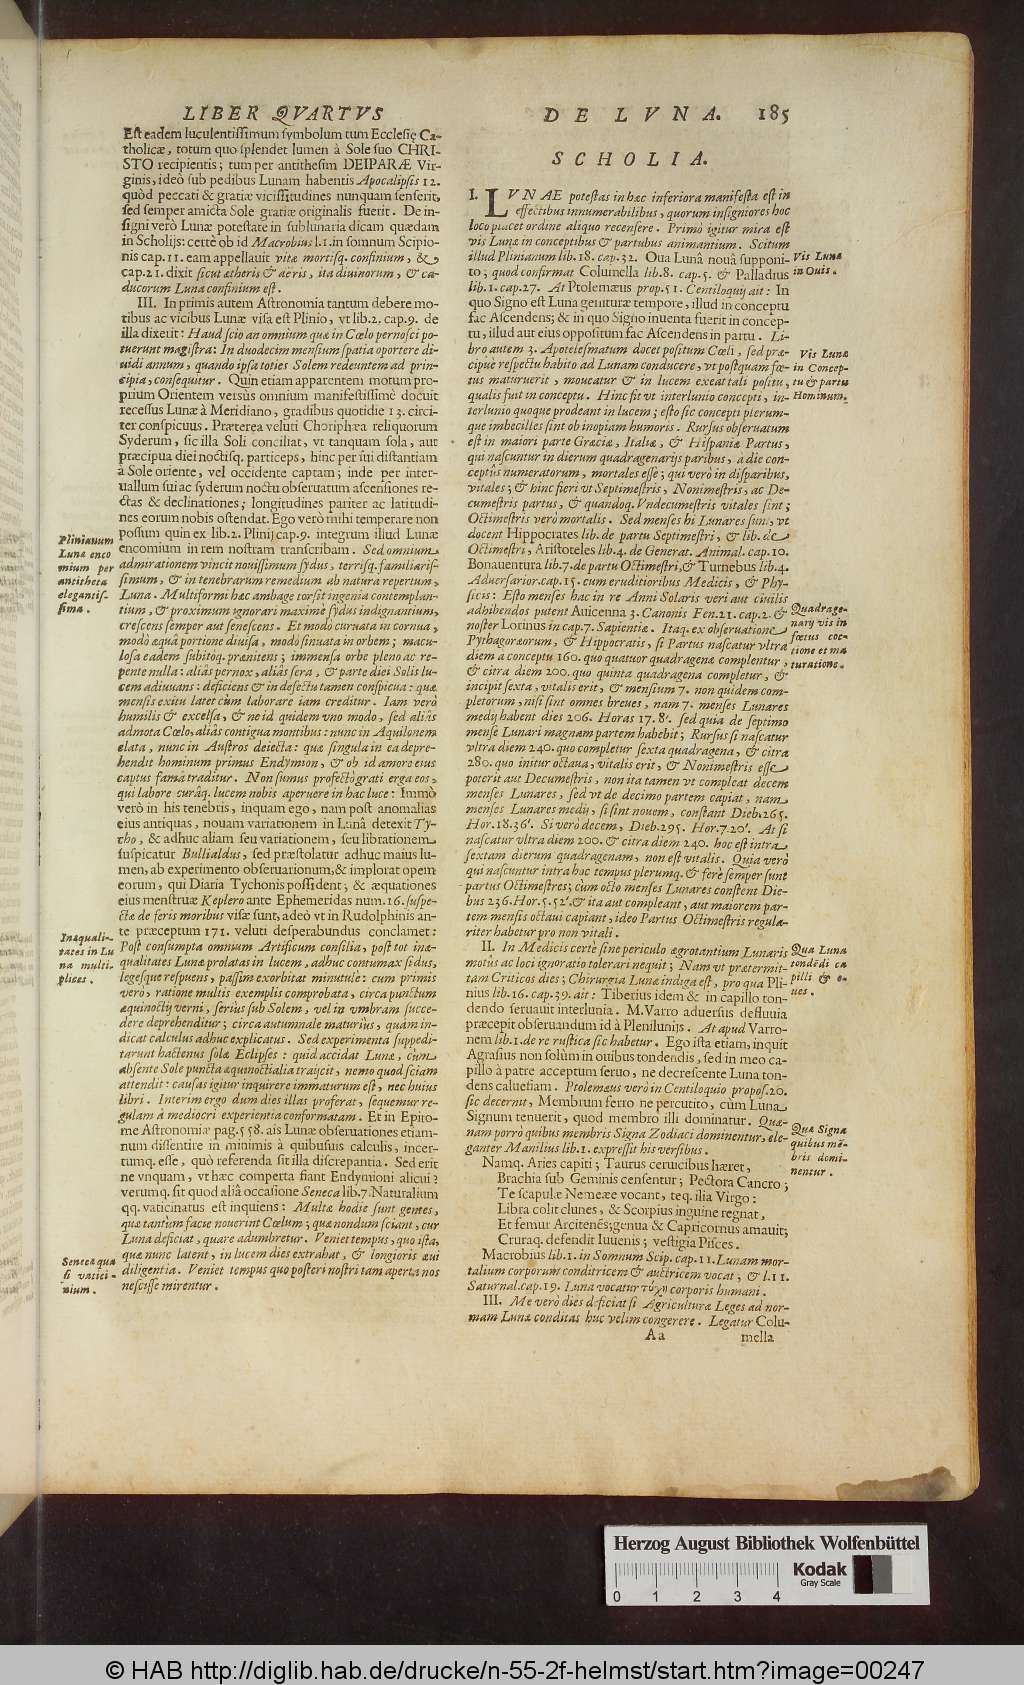 LIBER QVARTVS
Est eadem luculentissimum symbolum tum Ecclesię Ca-
tholicæ, totum quo splendet lumen à Sole suo CHRI-
STO recipientis; tum per antithesim DEIPARÆ Vir-
ginis, ideò sub pedibus Lunam habentis Apocalipsis 12.
quòd peccati & gratiæ vicissitudines nunquam senserit,
sed semper amicta Sole gratiæ originalis fuerit. De in-
signi verò Lunæ potestate in sublunaria dicam quædam
in Scholijs: certè ob id Macrobius l.1.in somnum Scipio-
nis cap.11.eam appellauit vitæ mortisq. confinium, &
cap.21.dixit sicut ætheris & aëris, ita diuinorum, & ca-
ducorum Luna confinium est.
III. In primis autem Astronomia tantum debere mo-
tibus ac vicibus Lunæ visa est Plinio, vt lib.2. cap.9. de
illa dixerit: Haud scio an omnium quæ in Cœlo pernosci po-
tuerunt magistra: In duodecim mensium spatia oportere di-
uidi annum, quando ipsa toties Solem redeuntem ad prin-
cipia, consequitur. Quin etiam apparentem motum pro-
prium Orientem versùs omnium manifestissimè docuit
recessus Lunæ à Meridiano, gradibus quotidie 13. circi-
ter conspicuus. Præterea veluti Choriphæa reliquorum
Syderum, sic illa Soli conciliat, vt tanquam sola, aut
præcipua diei noctisq. particeps, hinc per sui distantiam
à Sole oriente, vel occidente captam; inde per inter-
uallum sui ac syderum noctu obseruatum ascensiones re-
ctas & declinationes; longitudines pariter ac latitudi-
nes eorum nobis ostendat. Ego verò mihi temperare non
possum quin ex lib.2. Plinij cap.9. integrum illud Lunæ
encomium in rem nostram transcribam. Sed omnium
admirationem vincit nouissimum sydus, terrisq. familiaris-
simum, & in tenebrarum remedium ab natura repertum,
Luna. Multiformi hæc ambage torsit ingenia contemplan-
tium, & proximum ignorari maximè sydus indignantium,
crescens semper aut senescens. Et modò curuata in cornua,
modò æquâ portione diuisa, modò sinuata in orbem; macu-
losa eadem subitòq. prænitens; immensa orbe pleno ac re-
pente nulla: aliâs pernox, aliâs sera, & parte diei Solis lu-
cem adiuuans: deficiens & in defectu tamen conspicua: quæ
mensis exitu latet cùm laborare iam creditur. Iam verò
humilis & excelsa, & ne id quidem vno modo, sed aliâs
admota Cœlo, aliâs contigua montibus: nunc in Aquilonem
elata, nunc in Austros deiecta: quæ singula in ea depre-
hendit hominum primus Endymion, & ob id amore eius
captus famâ traditur. Non sumus profectò grati erga eos,
qui labore curâq. lucem nobis aperuere in hac luce: Immò
verò in his tenebris, inquam ego, nam post anomalias
eius antiquas, nouam variationem in Lunâ detexit Ty-
cho, & adhuc aliam seu variationem, seu librationem
suspicatur Bullialdus, sed præstolatur adhuc maius lu-
men, ab experimento obseruationum, & implorat opem
eorum, qui Diaria Tychonis possident; & æquationes
eius menstruæ Keplero ante Ephemeridas num.16. suspe-
ctæ de feris moribus visæ sunt, adeò vt in Rudolphinis an-
te præceptum 171. veluti desperabundus conclamet:
Post consumpta omnium Artificum consilia, post tot inæ-
qualitates Lunæ prolatas in lucem, adhuc contumax sidus,
legesque respuens, passim exorbitat minutulè: cum primis
verò, ratione multis exemplis comprobata, circa punctum
æquinoctij verni, seriùs sub Solem, vel in vmbram succe-
dere deprehenditur; circa autumnale maturiùs, quàm in-
dicat calculus adhuc explicatus. Sed experimenta suppedi-
tarunt hactenus solæ Eclipses: quid accidat Lunæ, cùm
absente Sole puncta æquinoctialia traijcit, nemo quod sciam
attendit: causas igitur inquirere immaturum est, nec huius
libri. Interim ergo dum dies illas proferat, sequemur re-
gulam à mediocri experientia conformatam. Et in Epito-
me Astronomiæ pag.558. ais Lunæ obseruationes etiam-
num dissentire in minimis à quibusuis calculis, incer-
tumq. esse, quò referenda sit illa discrepantia. Sed erit
ne vnquam, vt hæc comperta fiant Endynioni alicui?
verumq. sit quod aliâ occasione Seneca lib.7. Naturalium
qq. vaticinatus est inquiens: Multæ hodie sunt gentes,
quæ tantùm facie nouerint Cœlum; quæ nondum sciant, cur
Luna deficiat, quare adumbretur. Veniet tempus, quo ista,
quæ nunc latent, in lucem dies extrahat, & longioris æui
diligentia. Veniet tempus quo posteri nostri tam aperta nos
nescisse mirentur.
Plinianum
Lunæ enco
mium per
antitheta
elegantis-
sima.
Inæquali-
tates in Lu
na multi-
plices.
Seneca qua
si vatici-
nium.
DE LVNA. 185
SCHOLIA.
I. LVNAE potestas in hæc inferiora manifesta est in
effectibus innumerabilibus, quorum insigniores hoc
loco placet ordine aliquo recensere. Primò igitur mira est
vis Lunæ in conceptibus & partubus animantium. Scitum
illud Plinianum lib.18. cap.32. Oua Lunâ nouâ supponi-
to; quod confirmat Columella lib.8. cap.5. & Palladius
lib.1.cap.27. At Ptolemæus prop.51. Centiloquij ait: In
quo Signo est Luna genituræ tempore, illud in conceptu
fac Ascendens; & in quo Signo inuenta fuerit in concep-
tu, illud aut eius oppositum fac Ascendens in partu. Li-
bro autem 3. Apotelesmatum docet positum Cœli, sed præ-
cipuè respectu habito ad Lunam conducere, vt postquam fœ-
tus maturuerit, moueatur & in lucem exeat tali positu,
qualis fuit in conceptu. Hinc fit vt interlunio concepti, in-
terlunio quoque prodeant in lucem; esto sic concepti plerum-
que imbecilles sint ob inopiam humoris. Rursus obseruatum
est in maiori parte Græciæ, Italiæ, & Hispaniæ Partus,
qui nascuntur in dierum quadragenarijs paribus, à die con-
ceptùs numeratorum, mortales esse; qui verò in disparibus,
vitales; & hinc fieri vt Septimestris, Nonimestris, ac De-
cumestris partus, & quandoq. Vndecumestris vitales sint;
Octimestris verò mortalis. Sed menses hi Lunares sunt, vt
docent Hippocrates lib. de partu Septimestri, & lib. de
Octimestri, Aristoteles lib.4. de Generat. Animal. cap.10.
Bonauentura lib.7.de partu Octimestri, & Turnebus lib.4.
Aduersarior.cap.15. cum eruditioribus Medicis, & Phy-
sicis: Esto menses hac in re Anni Solaris veri aut ciuilis
adhibendos putent Auicenna 3. Canonis Fen.21. cap.2. &
noster Lorinus in cap.7. Sapientiæ. Itaq. ex obseruatione
Pythagoræorum, & Hippocratis, si Partus nascatur vltra
diem à conceptu 160. quo quattuor quadragenæ complentur,
& citra diem 200. quo quinta quadragena completur, &
incipit sexta, vitalis erit, & mensium 7. non quidem com-
pletorum, nisi sint omnes breues, nam 7. menses Lunares
medij habent dies 206. Horas 17.8'. sed quia de septimo
mense Lunari magnam partem habebit; Rursus si nascatur
vltra diem 240. quo completur sexta quadragena, & citra
280. quo initur octaua, vitalis erit, & Nonimestris esse
poterit aut Decumestris, non ita tamen vt compleat decem
menses Lunares, sed vt de decimo partem capiat, nam
menses Lunares medij, si sint nouem, constant Dieb.265.
Hor.18.36'. Si verò decem, Dieb.295. Hor.7.20'. At si
nascatur vltra diem 200. & citra diem 240. hoc est intra
sextam dierum quadragenam, non est vitalis. Quia verò
qui nascuntur intra hæc tempus plerumq. & ferè semper sunt
partus Octimestres; cùm octo menses Lunares constent Die-
bus 236.Hor.5.52'.& ita aut compleant, aut maiorem par-
tem mensis octaui capiant, ideo Partus Octimestris regula-
riter habetur pro non vitali.
II. In Medicis certè sine periculo ægrotantium Lunaris
motùs ac loci ignoratio tolerari nequit; Nam vt prætermit-
tam Criticos dies; Chirurgia Lunæ indiga est, pro qua Pli-
nius lib.16. cap.39. ait: Tiberius idem & in capillo ton-
dendo seruauit interlunia. M.Varro aduersus defluuia
præcepit obseruandum id à Plenilunijs. At apud Varro-
nem lib.1.de re rustica sic habetur. Ego ista etiam, inquit
Agrasius non solùm in ouibus tondendis, sed in meo ca-
pillo à patre acceptum seruo, ne decrescente Luna ton-
dens caluefiam. Ptolemæus verò in Centiloquio propos.20.
sic decernit, Membrum ferro ne percutito, cùm Luna
Signum tenuerit, quod membro illi dominatur. Quæ-
nam porrò quibus membris Signa Zodiaci dominentur, ele-
ganter Manilius lib.1. expressit his versibus.
Namq. Aries capiti; Taurus ceruicibus hæret,
Brachia sub Geminis censentur; Pectora Cancro;
Te scapulæ Nemeæe vocant, teq. ilia Virgo:
Libra colit clunes, & Scorpius inguine regnat,
Et femur Arcitenẽs;genua & Capricornus amauit;
Cruraq. defendit Iuuenis; vestigia Pisces.
Macrobius lib.1. in Somnum Scip. cap.11. Lunam mor-
talium corporum conditricem & auctricem vocat, & l.11.
Saturnal.cap.19. Luna vocatur τύχη corporis humani.
III. Me verò dies deficiat si Agriculturæ Leges ad nor-
mam Lunæ conditas huc velim congerere. Legatur Colu-
Aa mella
Vis Lunæ
in Ouis.
Vis Lunæ
in Concep-
tu & partu
Hominum.
Quadrage-
narÿ vis in
fœtus coe-
tione et ma
turatione.
Qua Luna
tondẽdi ca
pilli & o-
ues.
Quæ Signa
quibus mẽ-
bris domi-
nentur.
Herzog August Bibliothek Wolfenbüttel
Kodak
Gray Scale
0 1 2 3 4
© HAB http://diglib.hab.de/drucke/n-55-2f-helmst/start.htm?image=00247